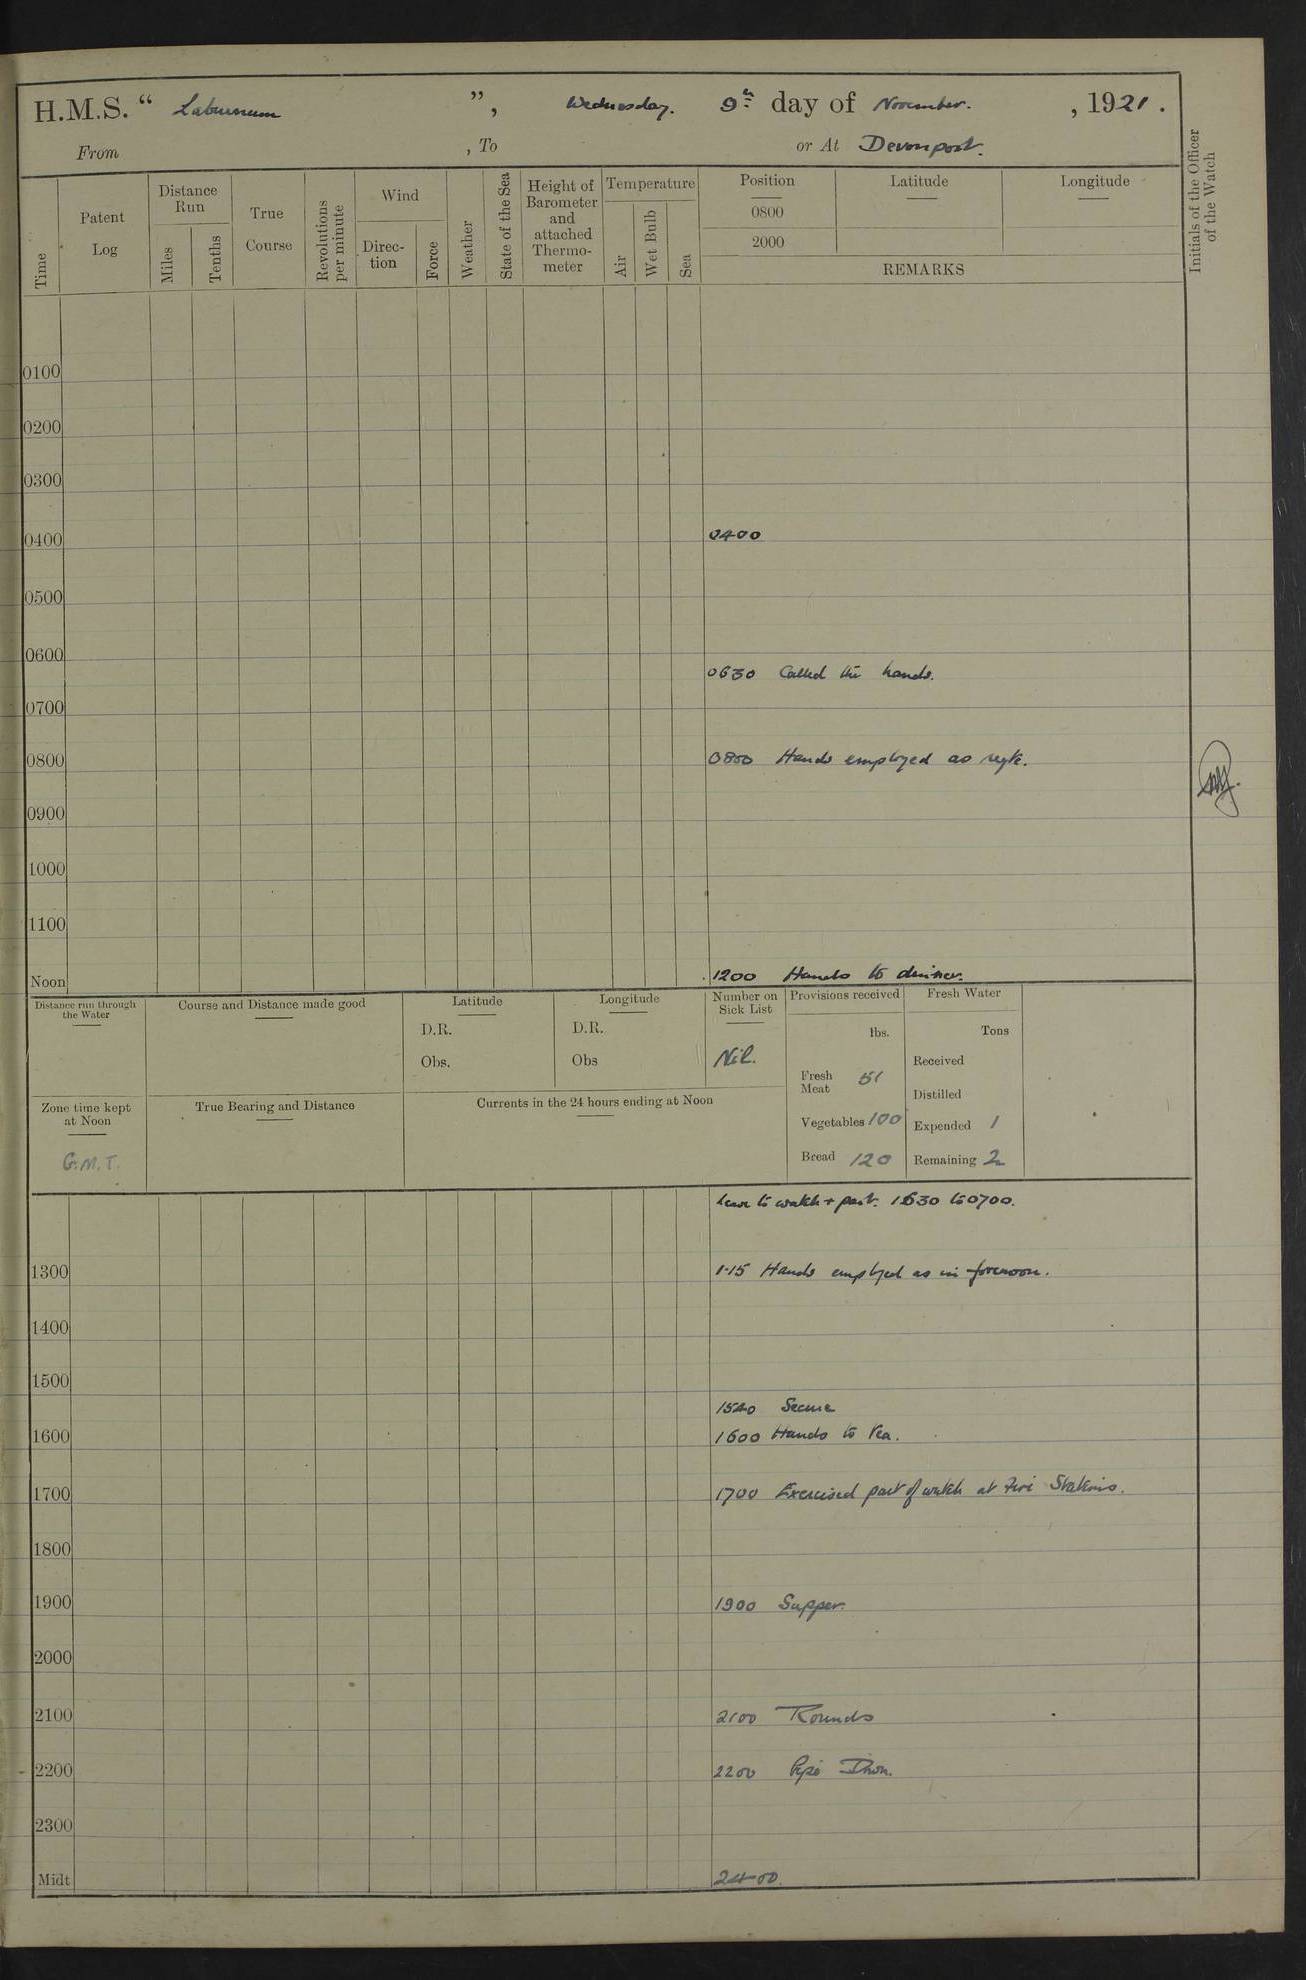 H.M.S. “ Laburnum ”, Wednesday. 9th day of November. , 1921.
From , To or At Devonport.
Time
Patent Log
Distance Run
Miles
Tenths
True Course
Revolutions per minute
Wind
Direc-
tion
Force
Weather
State of the Sea
Height of
Barometer
and
attached
Thermo-
meter
Temperature
Air
Wet Bulb
Sea
Position Latitude Longitude
0800
2000
REMARKS
Initials of the Officer
of the Watch
0100
0200
0300
0400 0400
0500
0600
0630 Called the hands.
0700
0800 0800 Hands employed as reqte.
0900
1000
1100
Noon 1200 Hands to dinner.
Distance run through
the Water
Course and Distance made good
Latitude
D.R.
Obs.
Longitude
D.R.
Obs
Number on
Sick List
Nil.
Provisions received
lbs.
Fresh
Meat 51
Vegetables 100
Bread 120
Fresh Water
Tons
Received
Distilled
Expended 1
Remaining 2
Zone time kept
at Noon
G.M.T.
True Bearing and Distance
Currents in the 24 hours ending at Noon
Leave to watch + part. 1630 to 0700.
1300 1.15 Hands employed as in forenoon.
1400
1500
1540 Secure
1600 1600 Hands to Tea.
1700 1700 Exercised part of watch at Fire Stations.
1800
1900 1900 Supper.
2000
2100 2100 Rounds
2200 2200 Pipe Down.
2300
Midt 2400